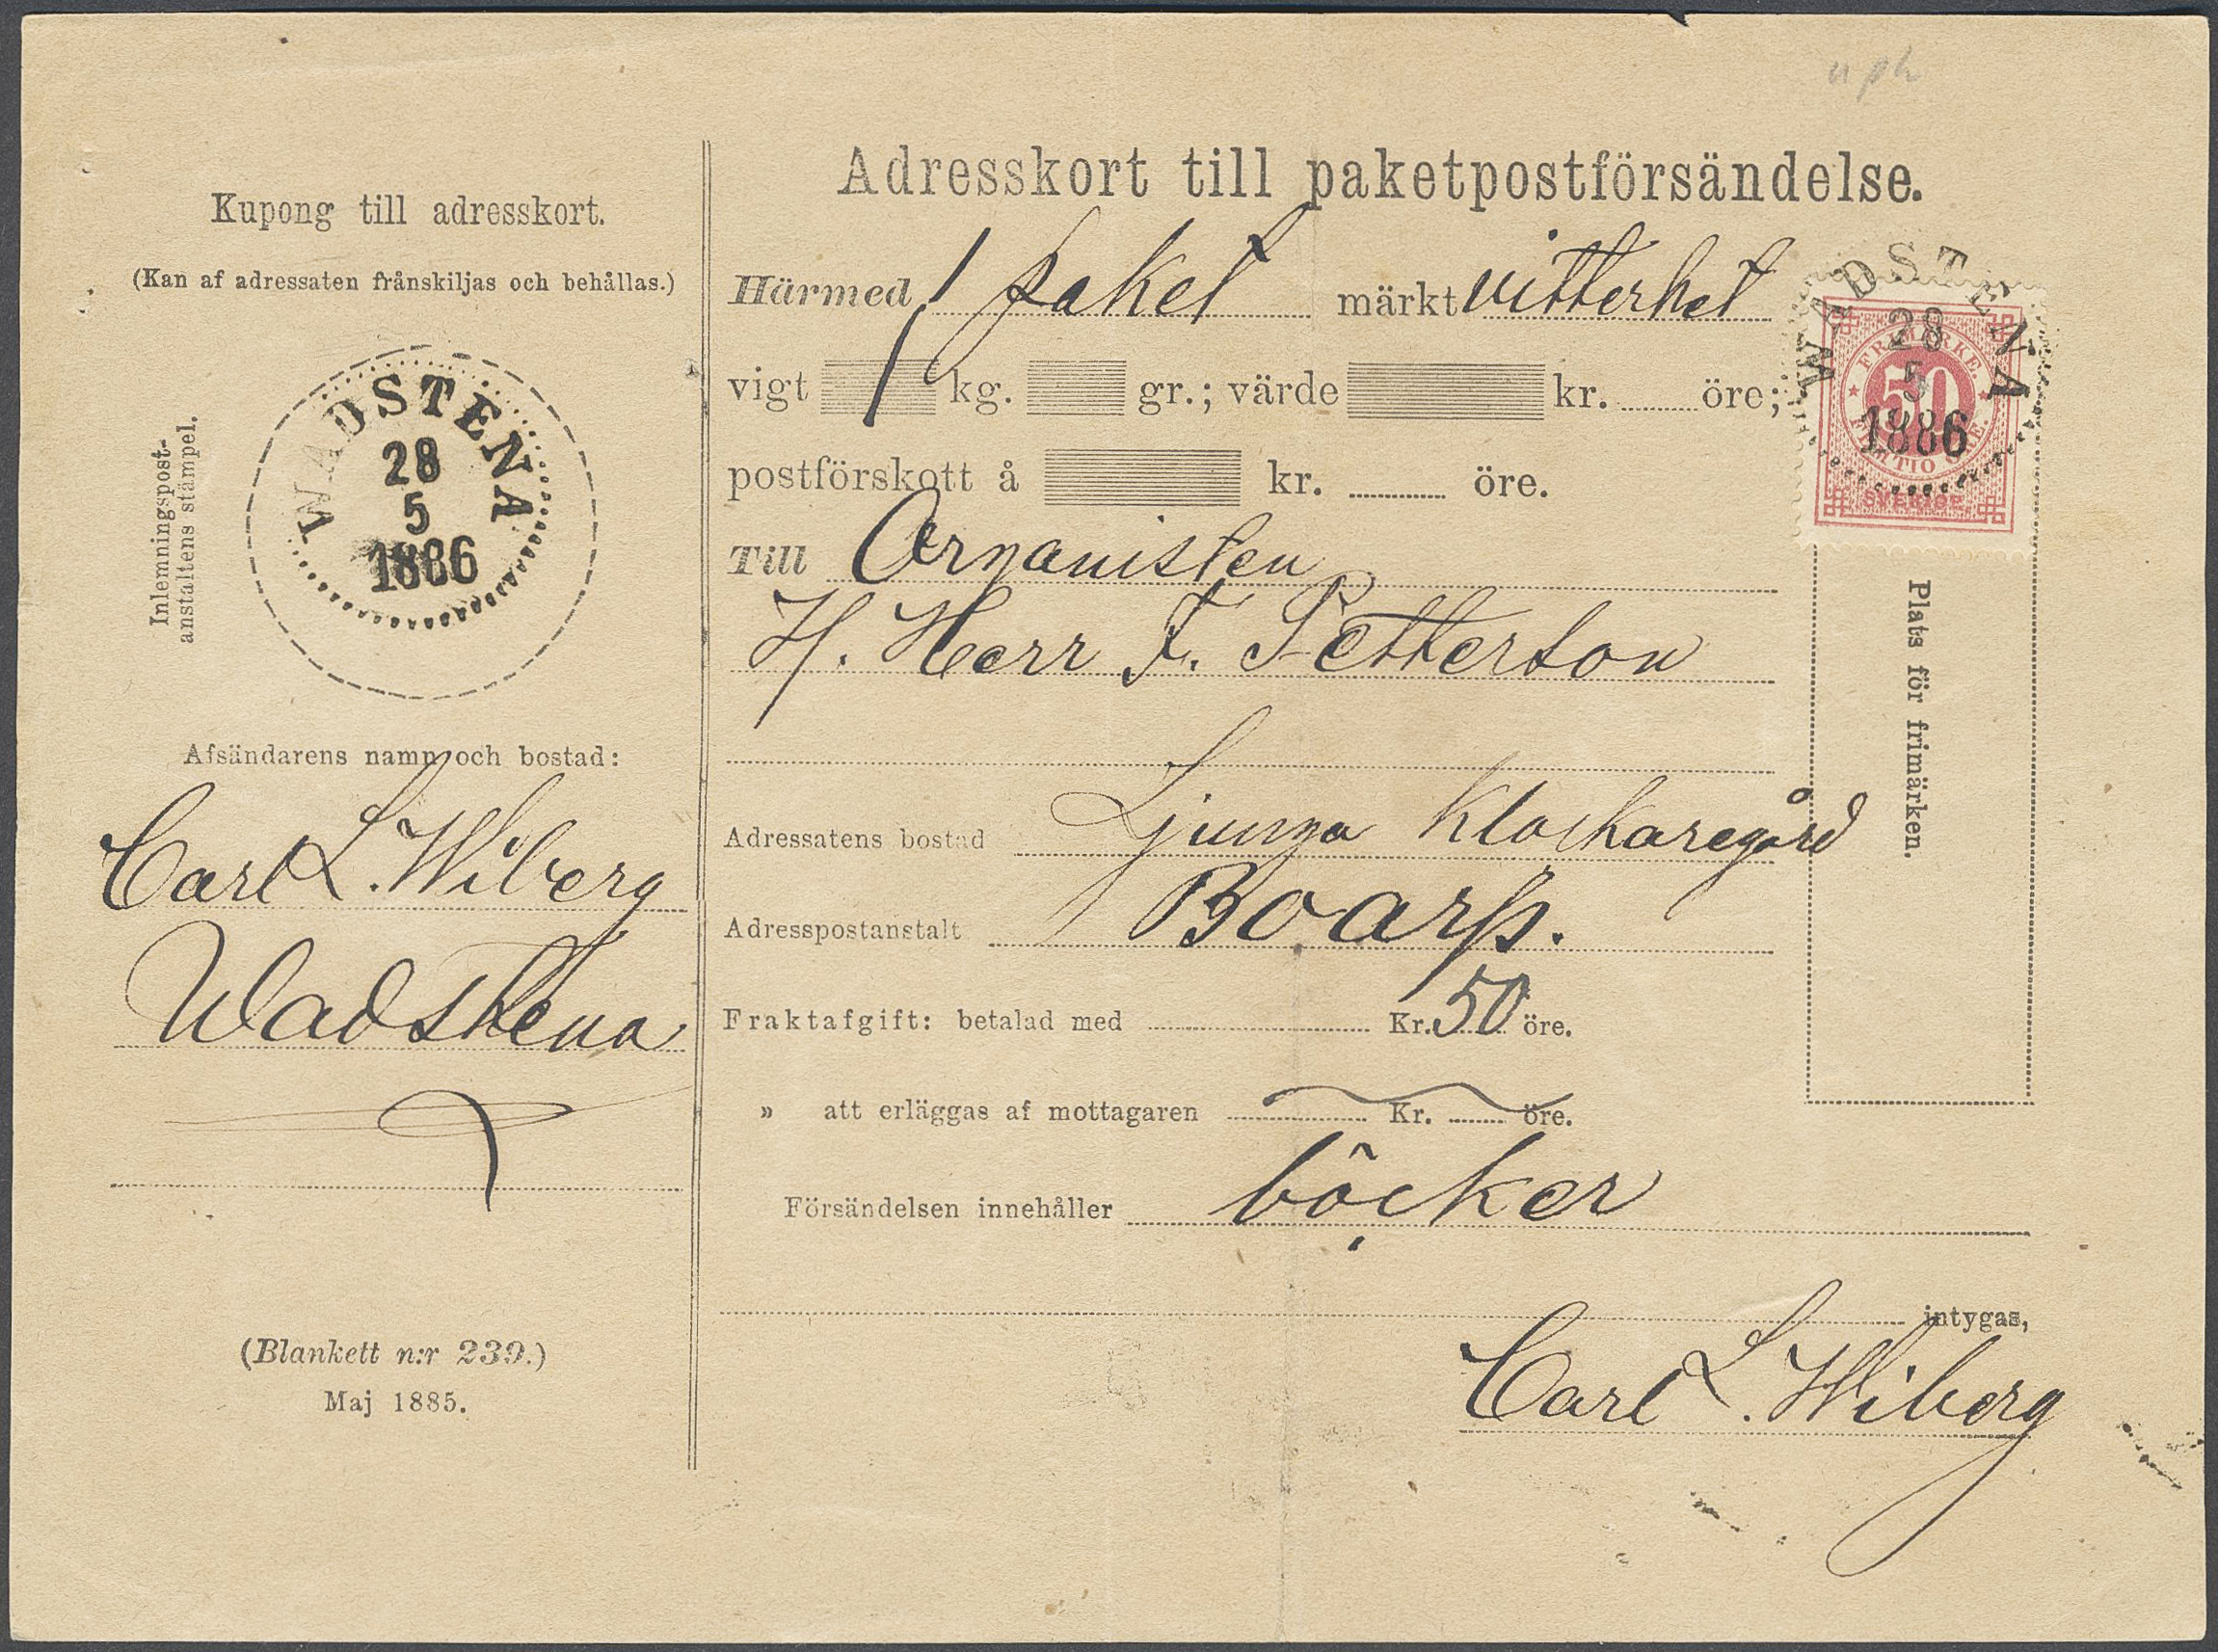 Kupong till adresskort.
(Kan af adressaten frånskiljas och behållas.)
Inlemningspost-
anstaltens stämpel.
WADSTENA
28
5
1886
Afsändarens namn och bostad:
Carl L. Wiberg
Wadstena
(Blankett n:r 239.)
Maj 1885.
Adresskort till paketpostförsändelse.
Härmed 1 paket märkt vitterhet
vigt 1 kg. gr.; värde kr. öre;
postförskott å kr. öre.
Till Organisten
H. Herr F. Petterson
Adressatens bostad Ljunga Klockaregård
Adresspostanstalt Boarp.
Fraktafgift: betalad med Kr. 50 öre.
» att erläggas af mottagaren Kr. öre.
Försändelsen innehåller böcker
intygas,
Carl L. Wiberg
WADSTENA
28
5
1886
FRIMÄRKE
50
FEMTIO ÖRE.
SVERIGE
Plats för frimärken.